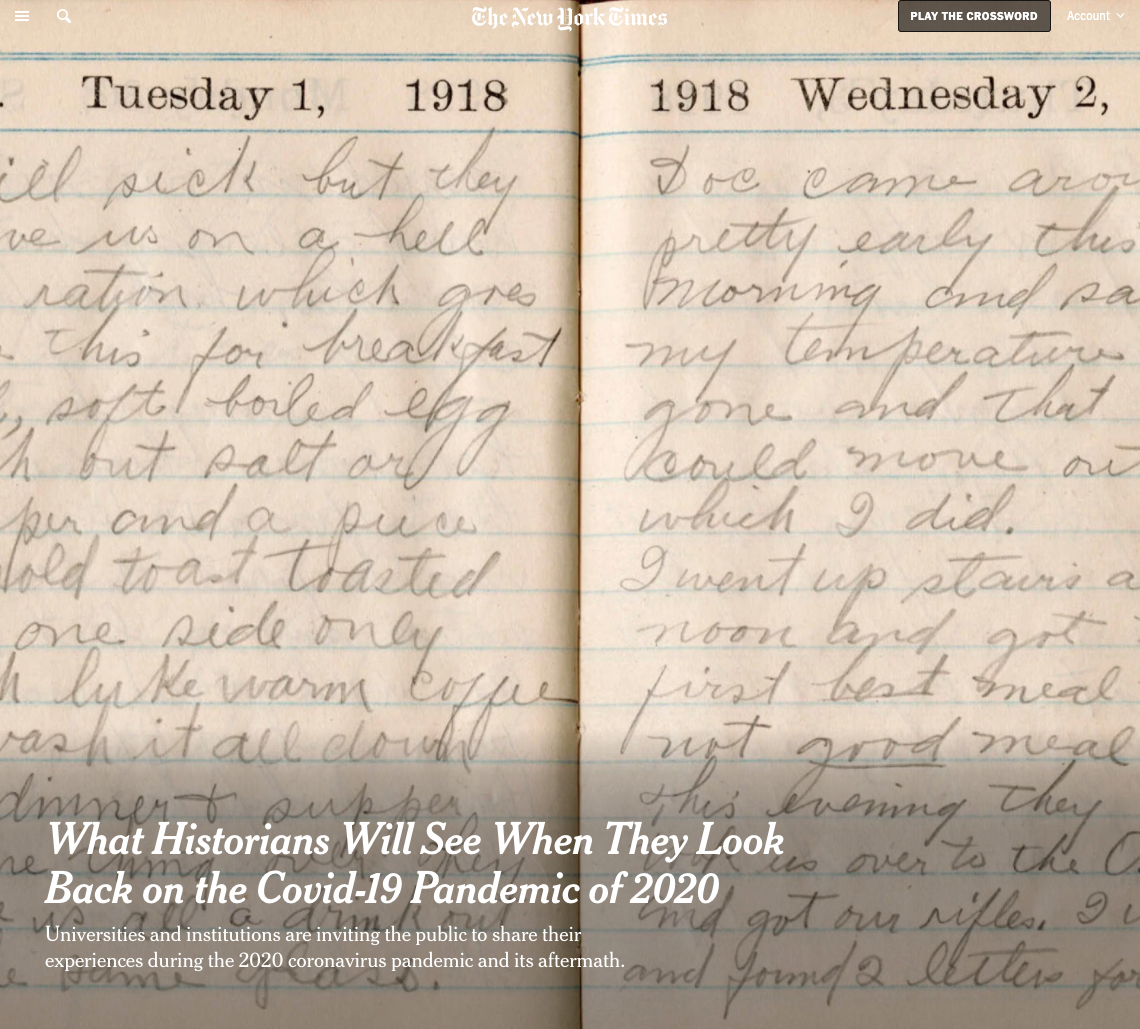 The New York Times
PLAY THE CROSSWORD
Account
Tuesday 1, 1918
ill sick but they
ve us on a hell
ration which goes
this for breakfast
soft boiled egg
h out salt or
per and a piece
old toast toasted
one side only
h luke warm coffee
wash it all down
dinner & supper
thing only they
us all a drink out
same glass.
1918 Wednesday 2,
Doc came arou
pretty early this
morning and sa
my temperature
gone and that
could move out
which I did.
I went up stairs a
noon and got
first best meal
not good meal
this evening they
us over to the
and got our rifles. I
and found 2 letters for
What Historians Will See When They Look
Back on the Covid-19 Pandemic of 2020
Universities and institutions are inviting the public to share their
experiences during the 2020 coronavirus pandemic and its aftermath.